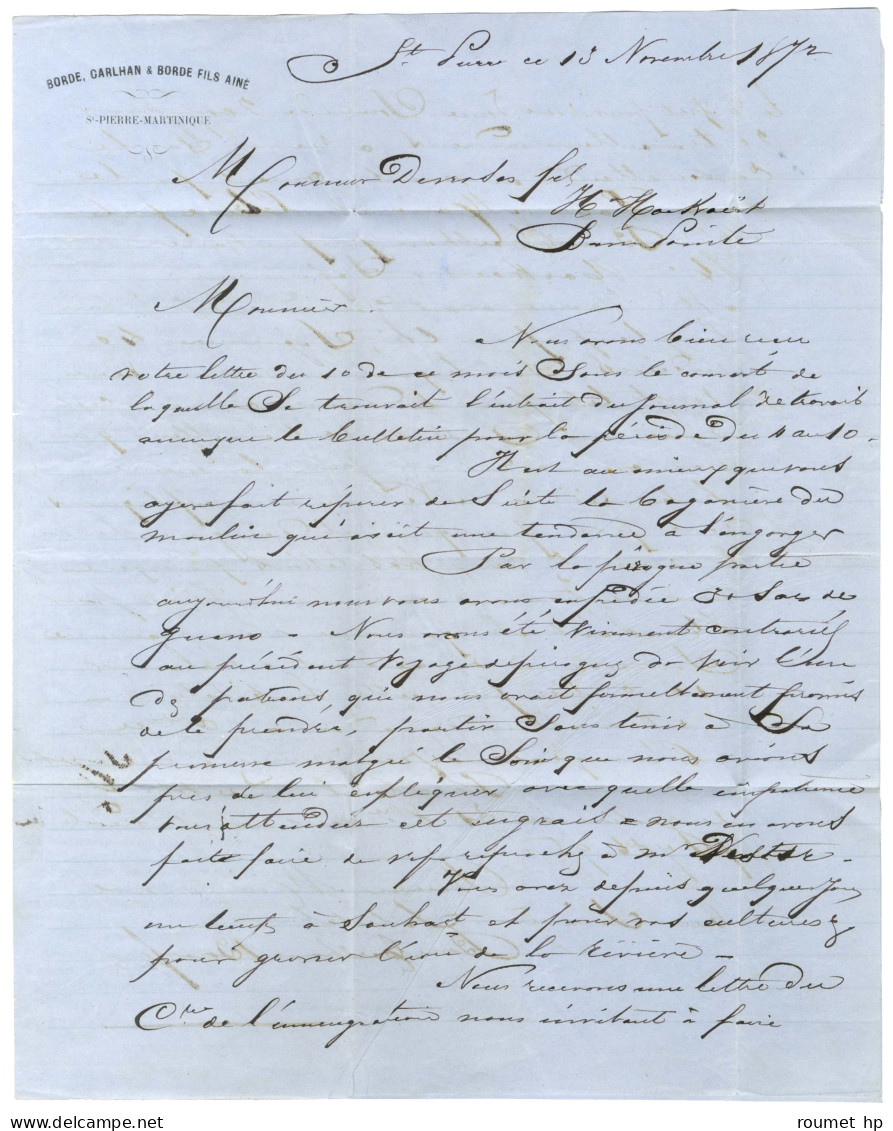 BORDE, CARLHAN & BORDE FILS AINÉ
St-PIERRE-MARTINIQUE
St Pierre ce 13 Novembre 1872
Monsieur Desrosses fils
Hon Hackaërt
Basse Pointe
Monsieur
Nous avons bien reçu
votre lettre du 10 de ce mois sous le couvert de
laquelle se trouvait l'extrait du Journal de travail
ainsi que le bulletin pour la période du 4 au 10.
Il est au mieux que vous
ayez fait réparer de suite la bagassière du
moulin qui avait une tendance à s'engorger
Par la pirogue partie
aujourd'hui nous vous avons expédié sacs de
guano. Nous avons été vivement contrariés
au précédent voyage de pirogues de voir l'un
des patrons, qui nous avait formellement promis
de le prendre, partir sans tenir à sa
promesse malgré le soin que nous avions
pris de lui expliquer avec quelle impatience
vous attendiez cet engrais = nous en avons
fait faire de vifs reproches à Mr
Vous avez depuis quelques jours
un temps à souhait et pour vos cultures &
pour grossir l'eau de la rivière.
Nous recevons une lettre du
Cre de l'immigration nous invitant à faire
roumet hp